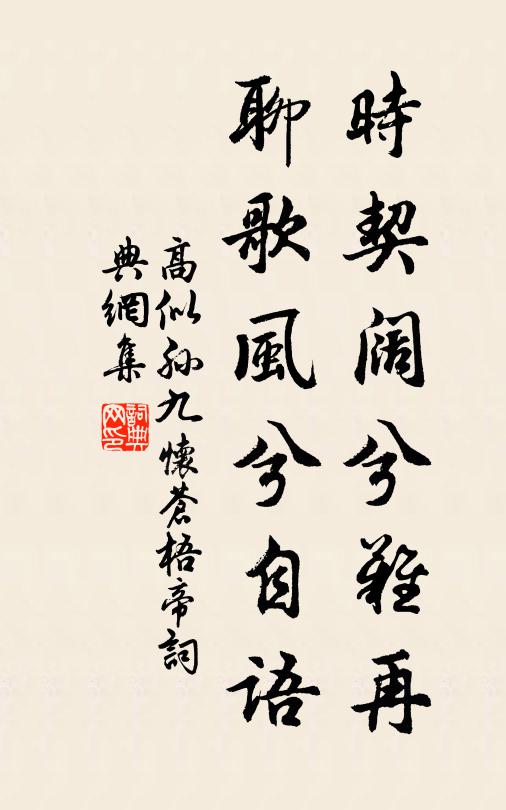 時契阔兮難再
聊歌風兮自语
高似孙九懷蒼梧帝詞
典網集
詞典
网印